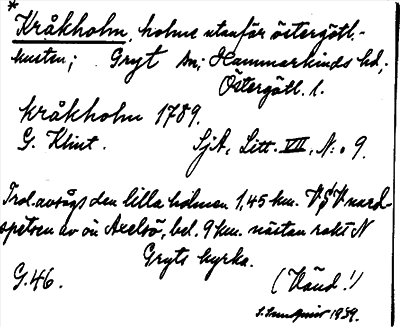 *
Kråkholm, holme utanför östergötl.-
kusten; Gryt sn; Hammarkinds hd;
Östergötl. l.
Kråkholm 1789.
G. Klint. SjA, Litt. VII, N:o 9.
Trol. avsågs den lilla holmen 1,45 km. VSV nord-
spetsen av ön Axelsö, bel. 9 km. nästan rakt N
Gryts kyrka.
G. 46. (Händ!)
1939.